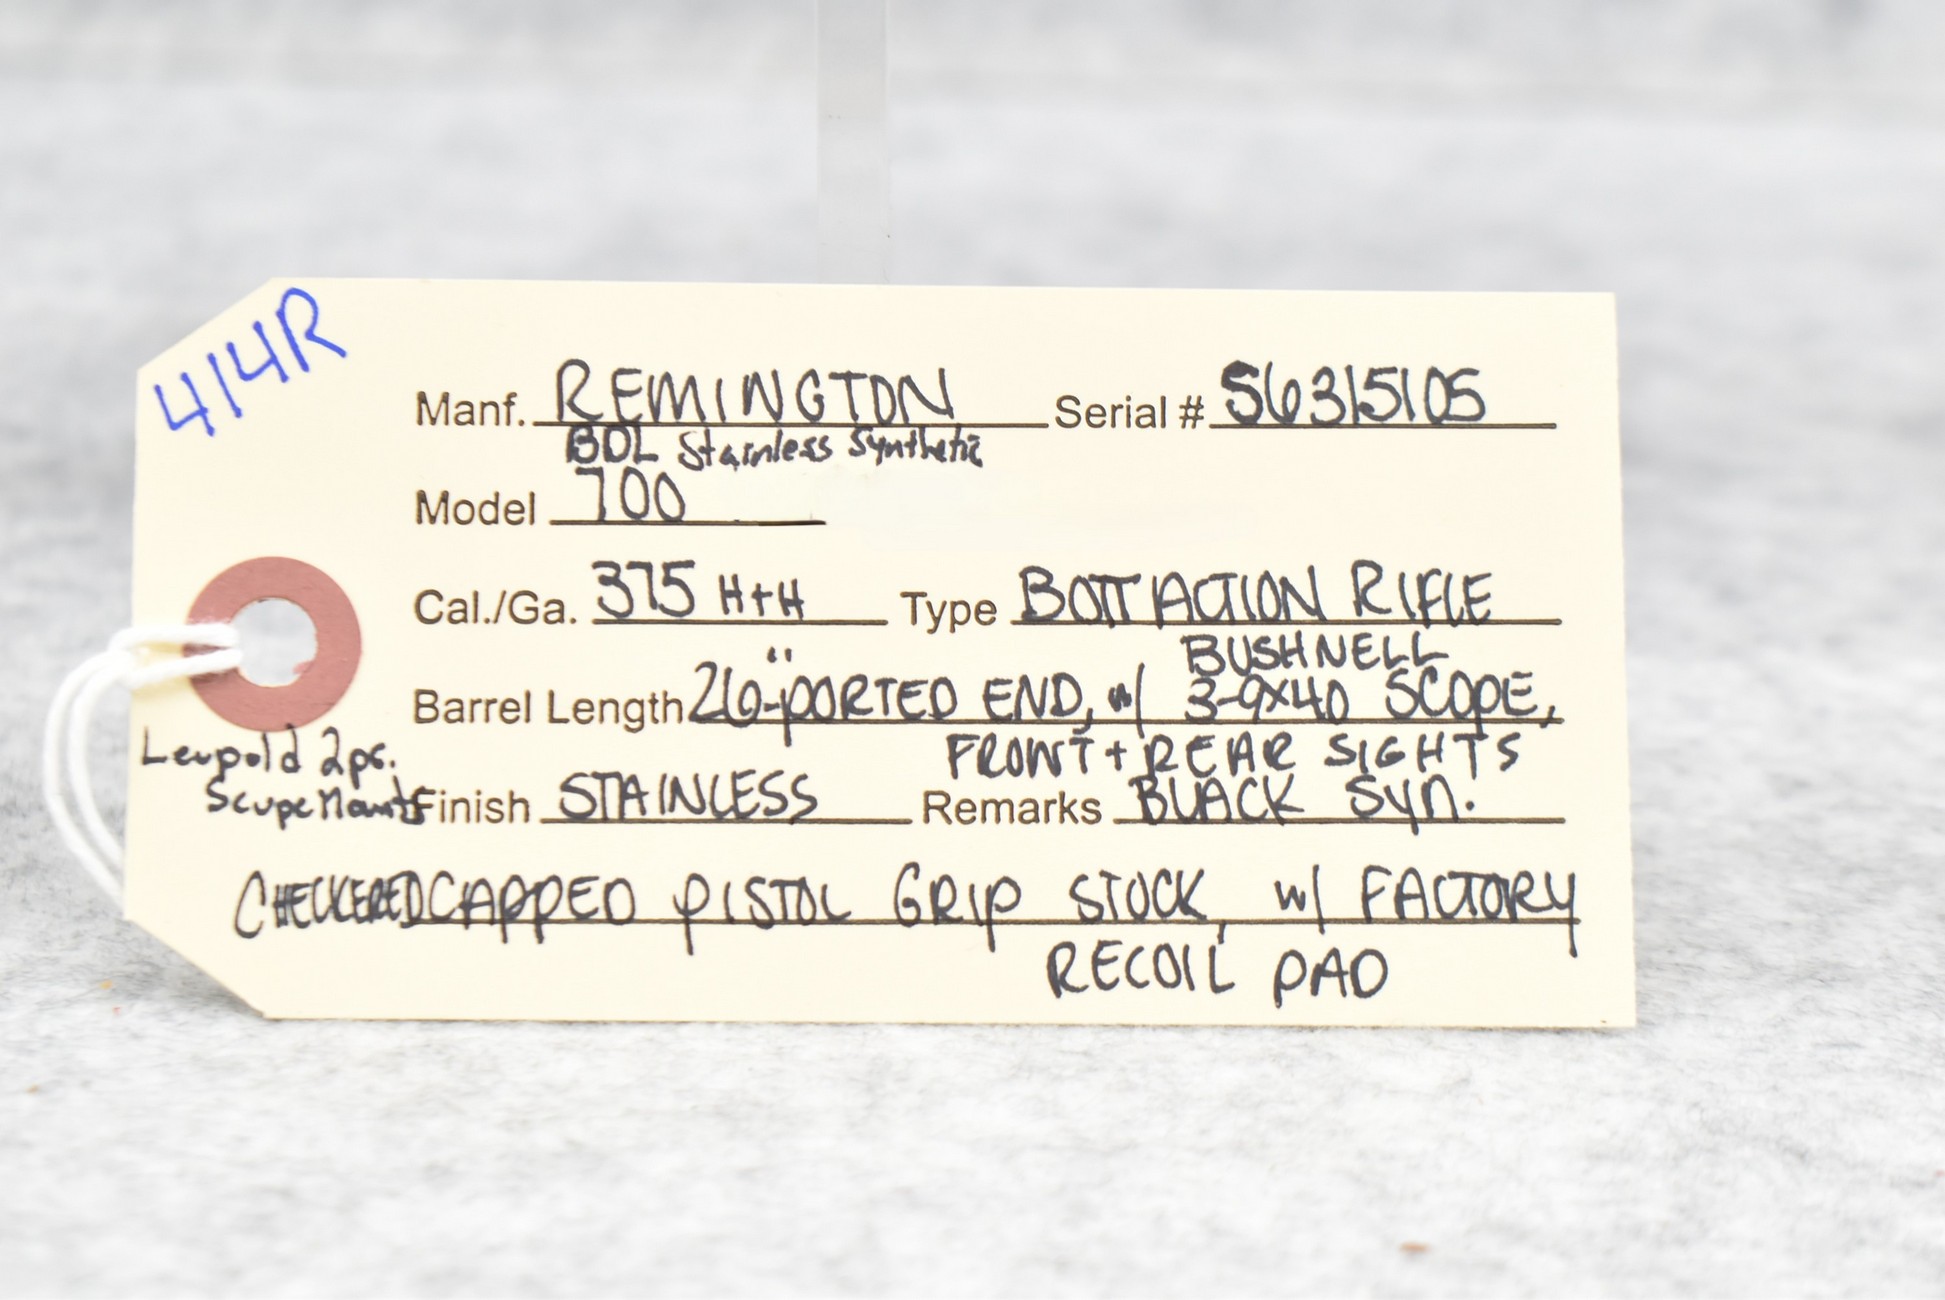 414R
Manf. REMINGTON Serial # S6315105
BDL Stainless Synthetic
Model 700
Cal./Ga. 375 H+H Type BOTT ACTION RIFLE
BUSHNELL
Barrel Length 26"-PORTED END, w/ 3-9X40 SCOPE,
Leupold 2pc. FRONT + REAR SIGHTS
Scope Mounts Finish STAINLESS Remarks BLACK Syn.
CHECKERED CAPPED PISTOL GRIP STOCK, w/ FACTORY
RECOIL PAD